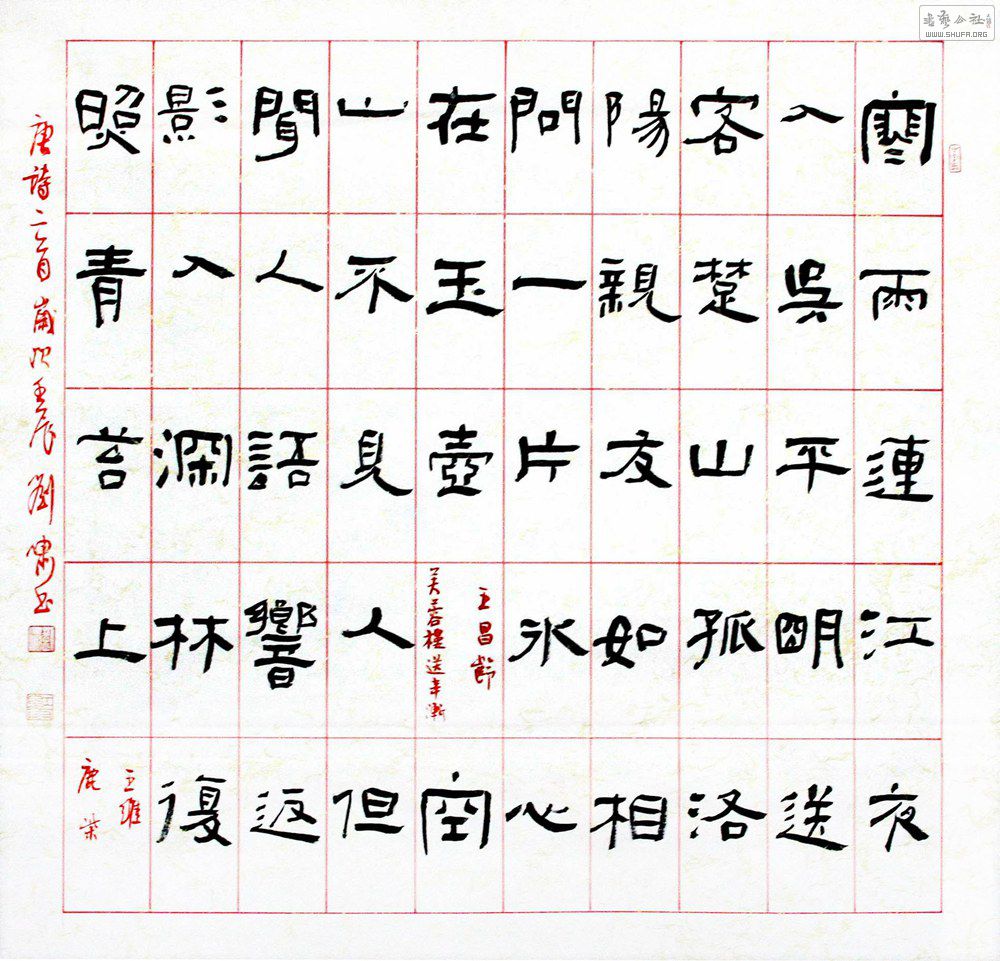 寒雨連江夜
入吳平明送
客楚山孤洛
陽親友如相
問一片氷心
在玉壺
王昌齡
芙蓉樓送辛漸
空
山不見人但
聞人語響返
影入深林復
照青苔上
王維
鹿柴
唐詩二首歲次壬辰劉嘯書
書藝公社
WWW.SHUFA.ORG